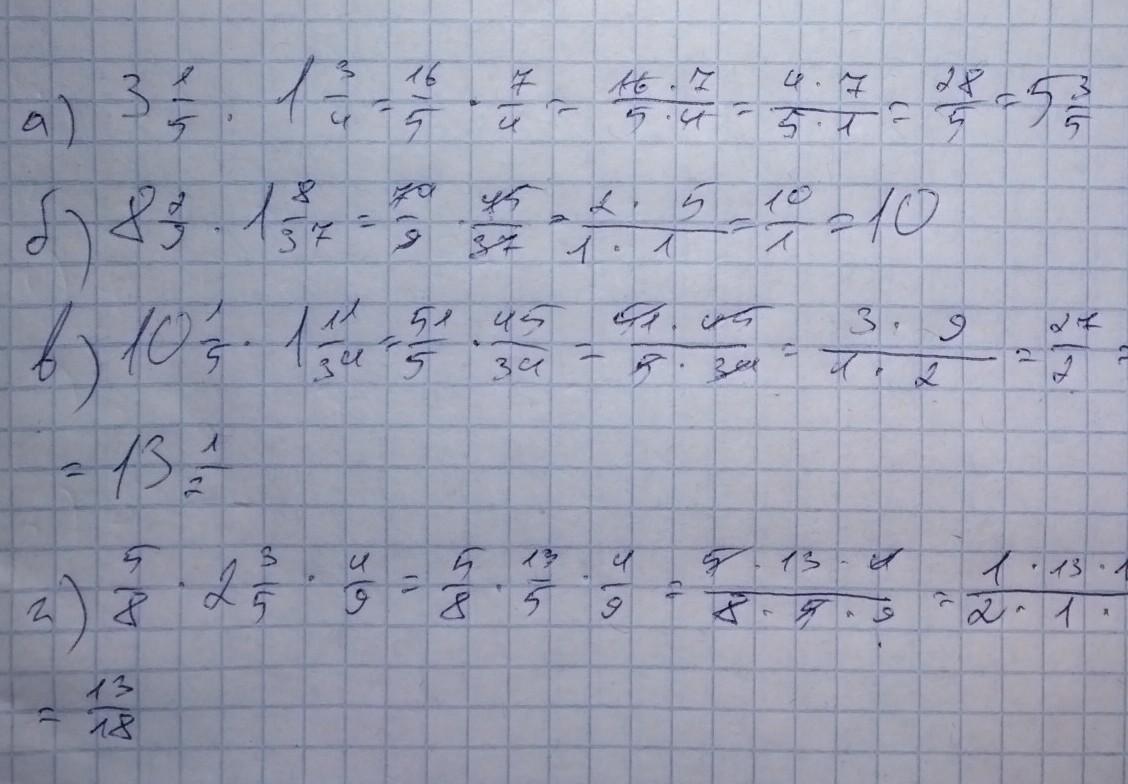 а) 3 1/5 · 1 3/4 = 16/5 · 7/4 = 16 · 7/5 · 4 = 4 · 7/5 · 1 = 28/5 = 5 3/5
б) 8 2/9 · 1 8/37 = 74/9 · 45/37 = 2 · 5/1 · 1 = 10/1 = 10
в) 10 1/5 · 1 11/34 = 51/5 · 45/34 = 51 · 45/5 · 34 = 3 · 9/1 · 2 = 27/2 =
= 13 1/2
г) 5/8 · 2 3/5 · 4/9 = 5/8 · 13/5 · 4/9 = 5 · 13 · 4/8 · 5 · 9 = 1 · 13 · 1/2 · 1 ·
= 13/18